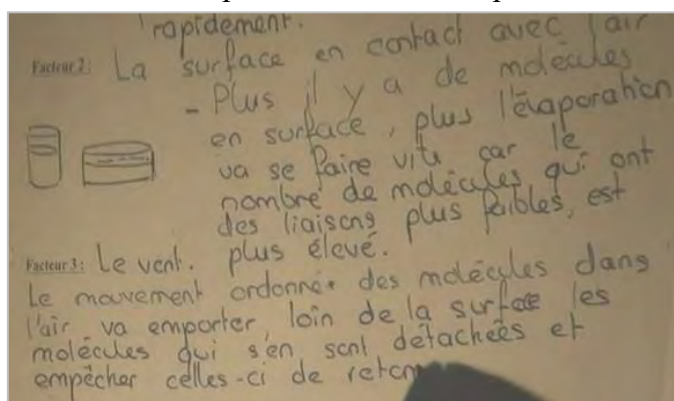 rapidement.
Facteur 2: La surface en contact avec l'air
- Plus il y a de molécules
en surface, plus l'évaporation
va se faire vite car le
nombre de molécules qui ont
des liaisons plus faibles, est
plus élevé.
Facteur 3: Le vent.
Le mouvement ordonner des molécules dans
l'air va emporter loin de la surface les
molécules qui s'en sont détachées et
empêcher celles-ci de